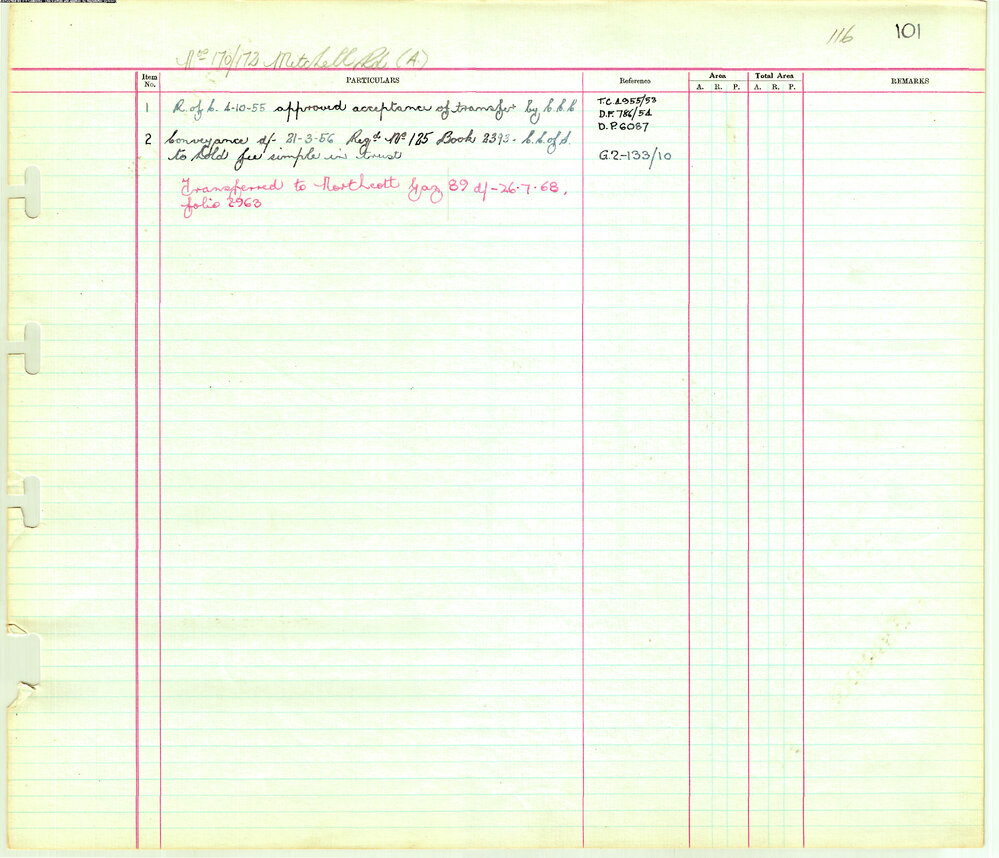 116 101
Nos 170/172 Mitchell Rd. (A)
Item No. PARTICULARS Reference Area Total Area REMARKS
A. R. P. A. R. P.
1 R. of C. 4-10-55 approved acceptance of transfer by C.C.C T.C. 4955/53
D.F. 786/54
D.P. 6087
2 Conveyance d/- 21-3-56 Regd. No 125 Book 2393 - C.C. of S.
to hold fee simple in trust G.2-133/10
Transferred to Northcott Gaz 89 d/- 26.7.68,
folio 2963